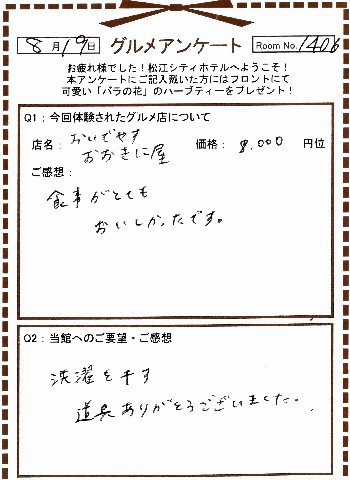 8月19日 グルメアンケート Room No. 1406
お疲れ様でした！松江シティホテルへようこそ！
本アンケートにご記入戴いた方にはフロントにて
可愛い「バラの花」のハーブティーをプレゼント！
Q1：今回体験されたグルメ店について
店名： おいでやす 価格： 8,000 円位
おおきに屋
ご感想：
食事がとても
おいしかったです。
Q2：当館へのご要望・ご感想
洗濯を干す
道具ありがとうございました。